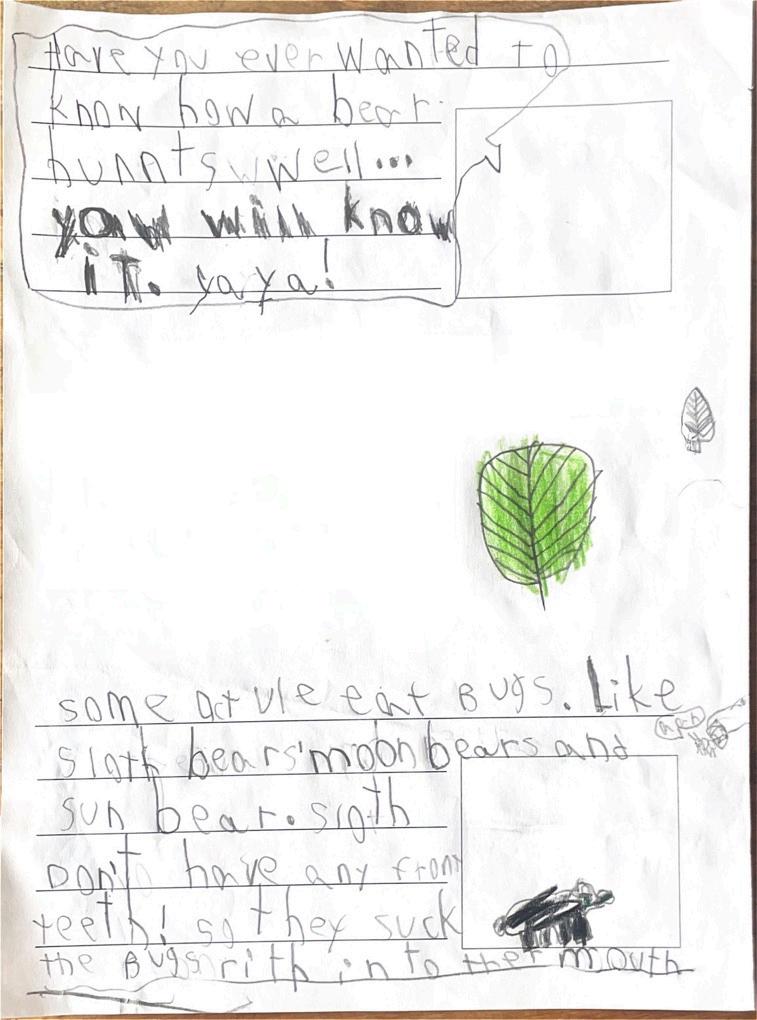 Have you ever wanted to
know how a bear
hunnts well...
yow will know
it. yaya!
some act ule eat Bugs. Like
sloth bears' moon bears and
sun bear. sloth
Don't have any front
teeth! so they suck
the Bugs rith into ther mouth